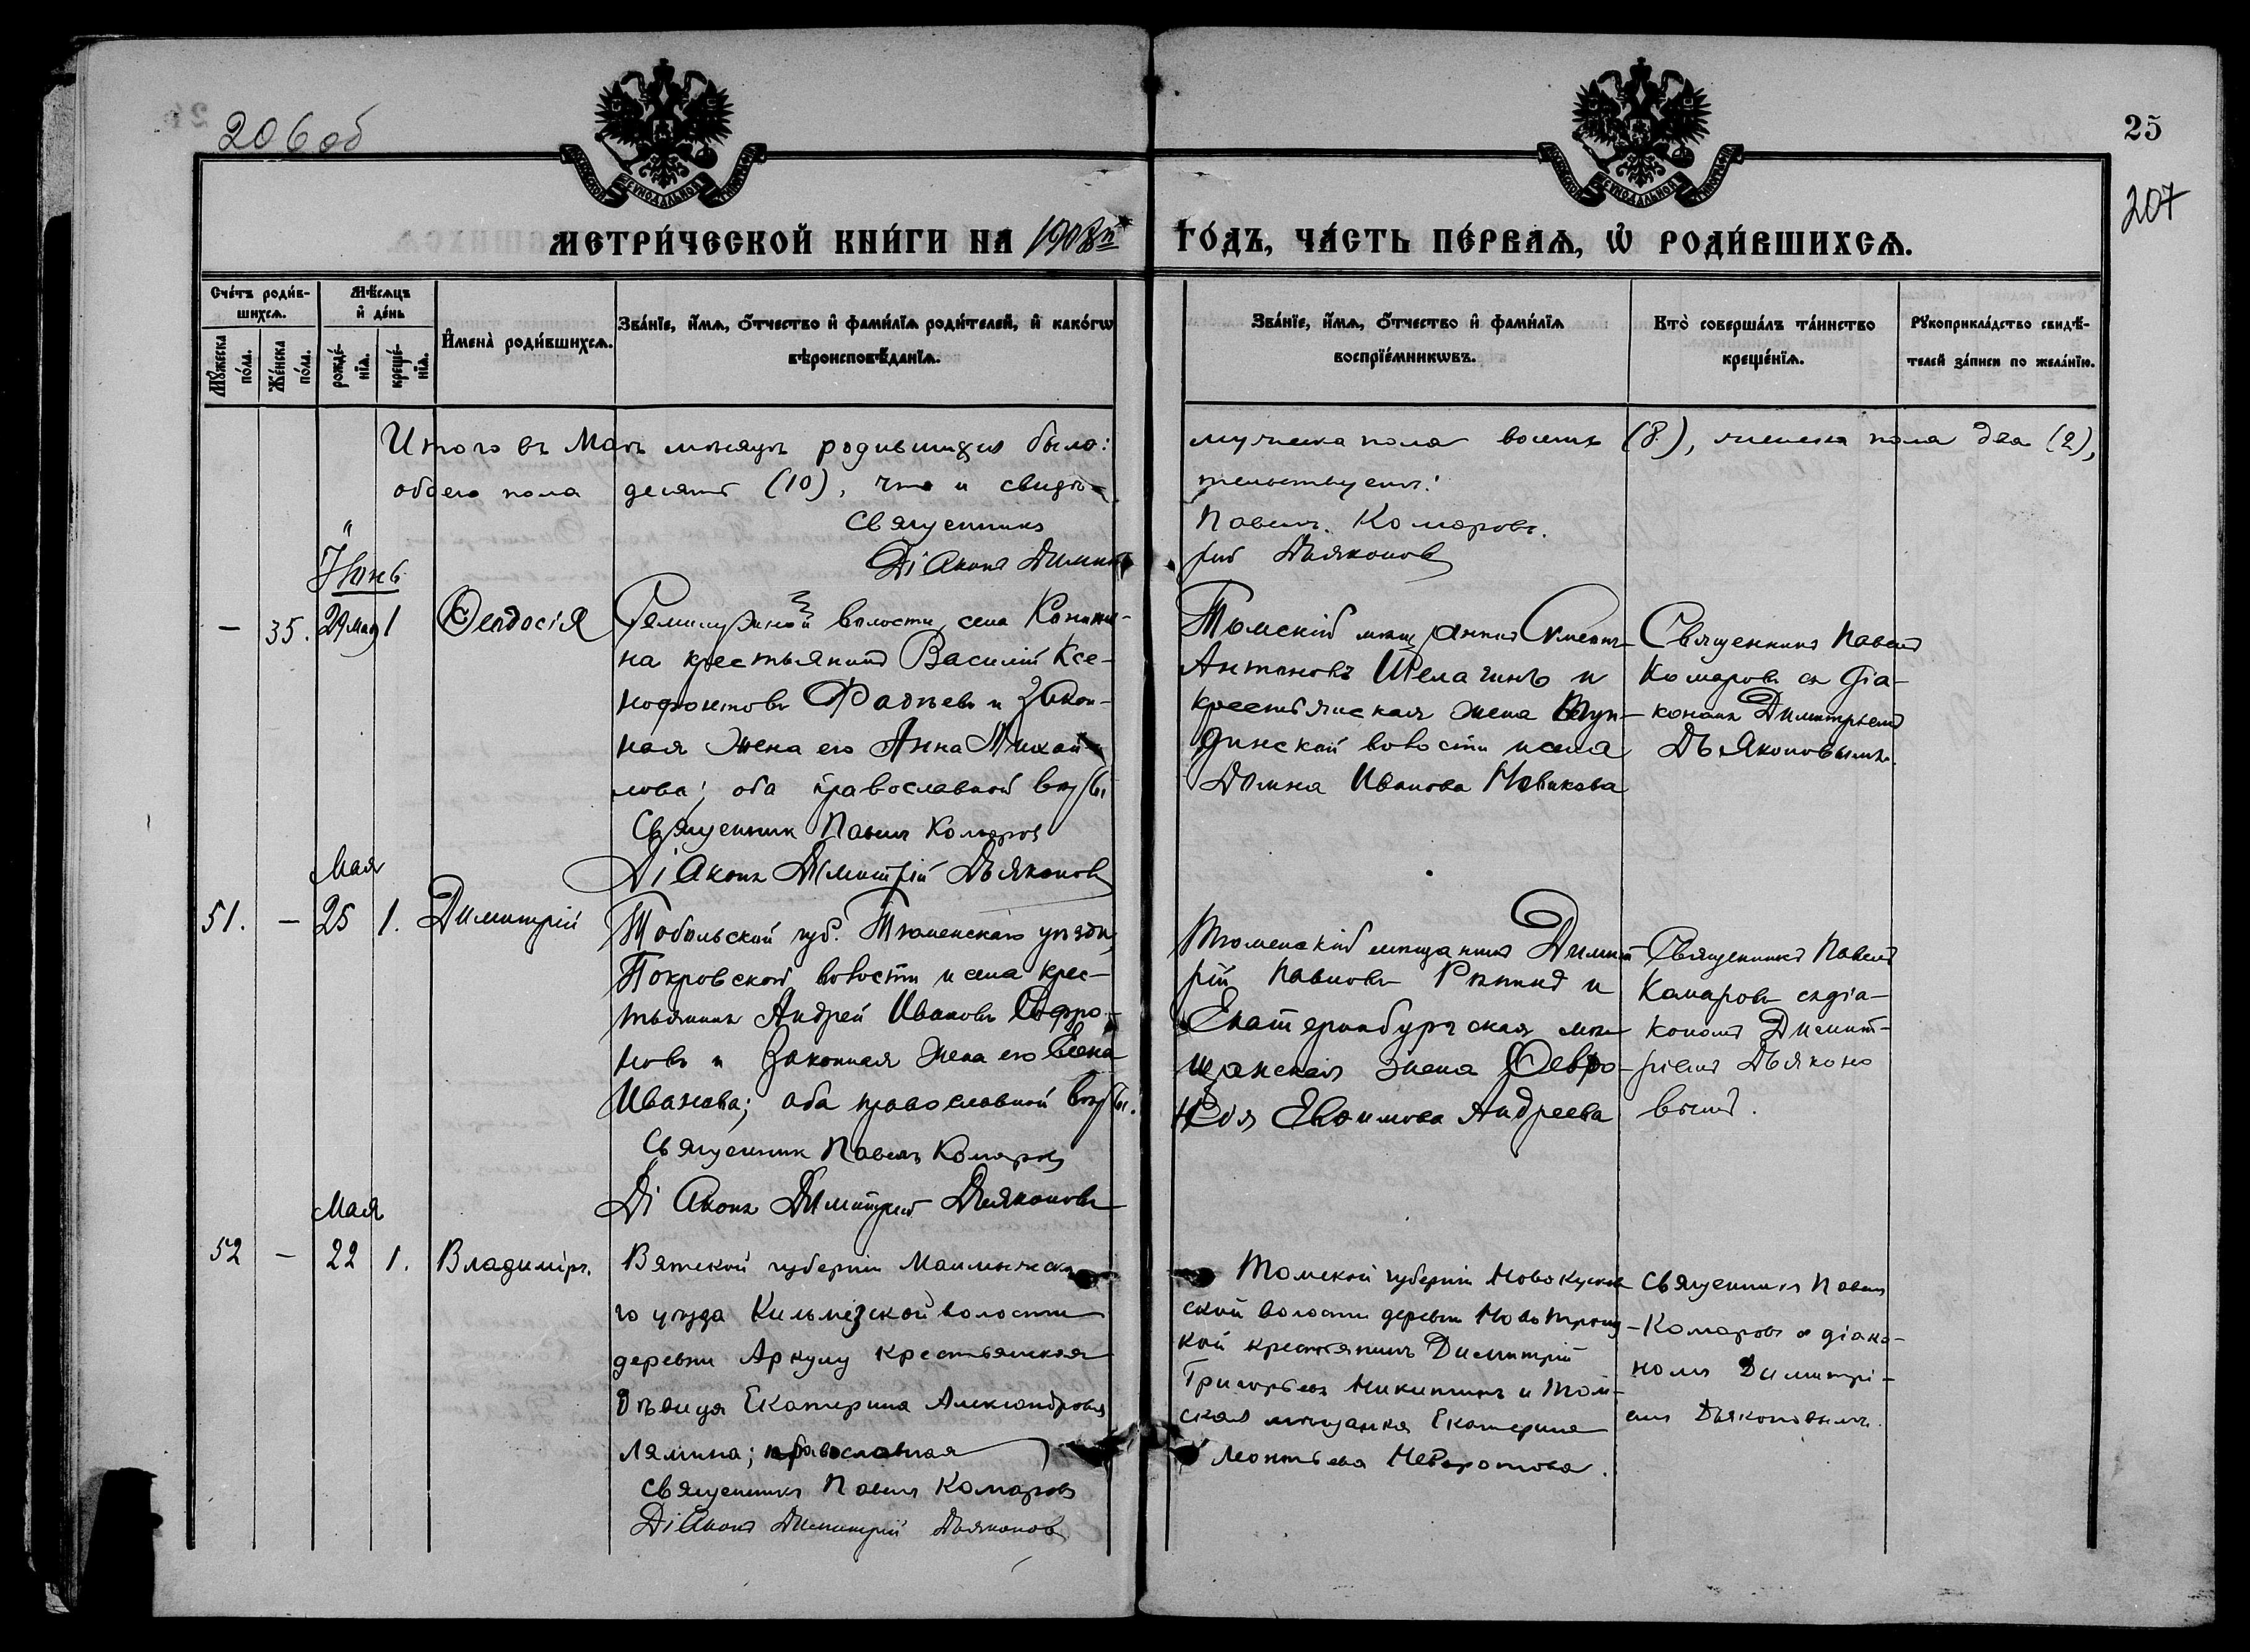 206 об
25
207
МЕТРИ́ЧЕСКОЙ КНИ́ГИ НА 1908й
ГО́ДЪ, ЧА́СТЬ ПЕ́РВАѦ, Ѡ҆ РОДИ́ВШИХСѦ.
Сче́тъ роди́в-
шихсѧ.
Мꙋ́жеска по́ла.
Же́нска по́ла.
Мѣ́сѧцъ
и҆ де́нь
рожде́-
нїѧ.
креще́-
нїѧ.
И҆мена̀ роди́вшихсѧ.
Зва́нїе, и҆́мѧ, о҆́тчество и҆ фами́лїѧ роди́телей, и҆ како́гѡ
вѣроисповѣ́данїѧ.
Зва́нїе, и҆́мѧ, о҆́тчество и҆ фами́лїѧ
воспрїе́мникѡвъ.
Кто̀ соверша́лъ та́инство
креще́нїѧ.
Рꙋкоприкла́дство свидѣ́-
телей за́писи по жела́нїю.
Итого въ Маѣ мѣсяцѣ родившихся было:
мужеска пола восемь (8), женска пола два (2),
обоего пола десять (10), что и свидѣ-
тельствуемъ:
Священникъ
Павелъ Комаровъ.
Діаконъ Димит
рій Дьяконов
Іюнь
— 35. 29 мая 1 Ѳеодосія
волости, села
на крестьянинъ Василій Ксе-
нофонтовъ Фадѣевъ и закон-
ная жена его Анна Михай-
лова; оба православной вѣры
Священник Павелъ Комаров
Діаконъ Димитрій Дьяконов
Томскій мѣщанинъ Симеонъ
Антоновъ Шелагинъ и
крестьянская жена
динской волости и села
Домна Иванова Новикова
Священникъ Павелъ
Комаровъ съ діа-
кономъ Димитріемъ
Дьяконовымъ.
Мая
51. — 25 1. Димитрій
Тобольской губ. Тюменскаго уѣзда,
Покровской волости и села крес-
тьянинъ Андрей Ивановъ Софро-
новъ и законная жена его Елена
Иванова; оба православной вѣры.
Священник Павелъ Комаров
Діаконъ Димитрій Дьяконовъ
Тюменскій мѣщанинъ Димит-
рій Павловъ и
Екатеринбургская мѣ-
щанская жена Февро-
нія Евѳимова Андреева
Священникъ Павелъ
Комаровъ съ діа-
кономъ Димит-
ріемъ Дьяконо
вымъ.
Мая
52 — 22 1. Владиміръ.
Вятской губерніи Малмыжска
го уѣзда Кильмезской волости
деревни Аркулу крестьянская
дѣвица Екатерина Александрова
Лямина; православная
Священникъ Павелъ Комаровъ
Діаконъ Димитрій Дьяконов
Томской губерніи Новокусков
ской волости деревни Новотроиц-
кой крестьянинъ Димитрій
Григорьевъ Никитинъ и Том-
ская мѣщанка Екатерина
Леонтьева
Священникъ Павелъ
Комаровъ с діако-
номъ Димитрі-
емъ Дьяконовымъ.